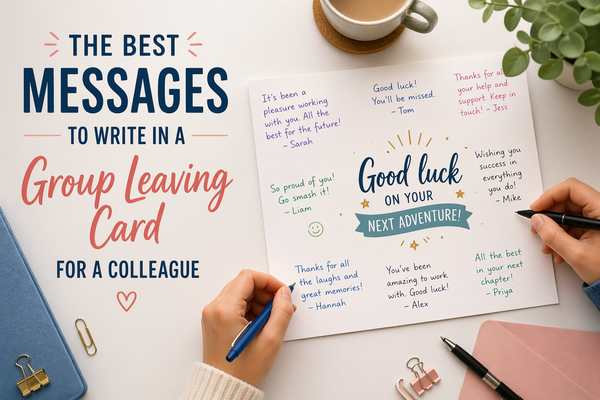 THE BEST
MESSAGES
TO WRITE IN A
Group Leaving
Card
FOR A COLLEAGUE
It's been a
pleasure working
with you. All the
best for the future!
– Sarah
Good luck!
You'll be missed.
– Tom
Thanks for all
your help and
support. Keep in
touch! – Jess
So proud of you!
Go smash it!
– Liam
Good luck
ON YOUR
NEXT ADVENTURE!
Wishing you
success in
everything
you do!
– Mike
Thanks for all
the laughs and
great memories!
– Hannah
You've been
amazing to work
with. Good luck!
– Alex
All the best
in your next
chapter!
– Priya